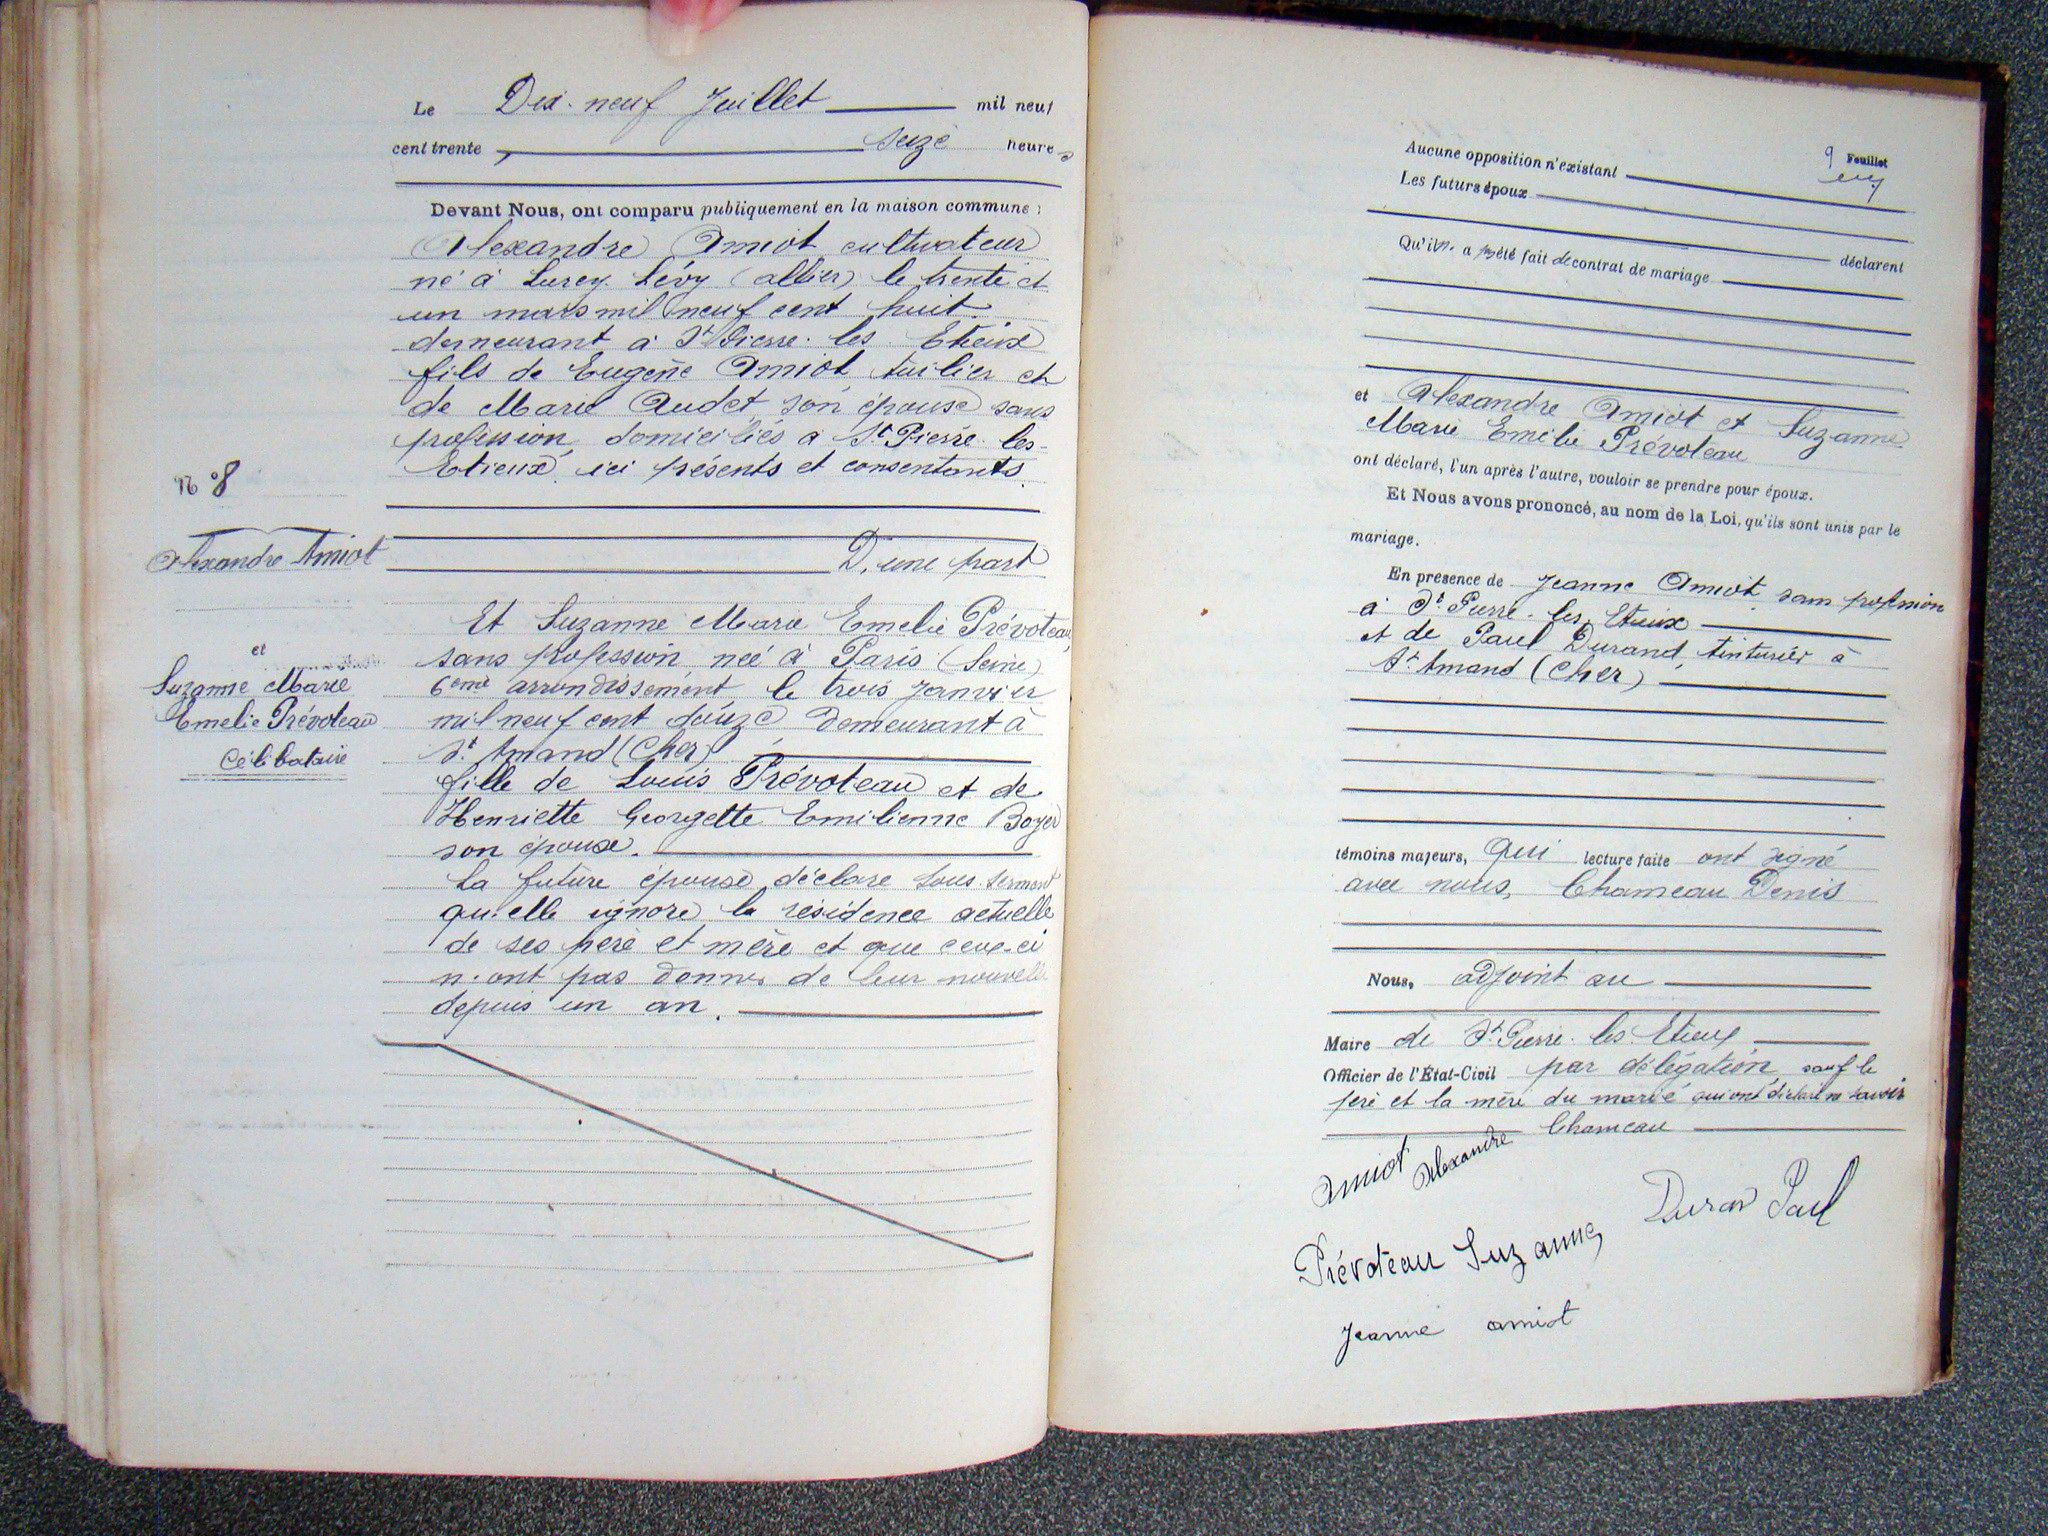 Le Dix-neuf Juillet mil neuf
cent trente, seize heures
Devant Nous, ont comparu publiquement en la maison commune :
Alexandre Amiot cultivateur
né à Lurcy-Lévy (allier) le trente et
un mars mil neuf cent huit.
demeurant à St Pierre-les-Etieux
fils de Eugène Amiot tuilier et
de Marie Audet son épouse sans
profession, domiciliés à St Pierre-les-
Etieux, ici présents et consentants.
D'une part
N° 8
Alexandre Amiot
et
Suzanne Marie
Emelie Prévoteau
Célibataire
Et Suzanne Marie Emelie Prévoteau
sans profession née à Paris (Seine)
6eme arrondissement le trois janvier
mil neuf cent douze demeurant à
St Amand (Cher)
fille de Louis Prévoteau et de
Henriette Georgette Emilienne Boyer
son épouse.
La future épouse déclare sous serment
qu'elle ignore la résidence actuelle
de ses père et mère et que ceux-ci
n'ont pas donnés de leur nouvelle
depuis un an.
9 Feuillet
Aucune opposition n'existant
Les futurs époux
déclarent
Qu'il n'a pas été fait de contrat de mariage
et Alexandre Amiot et Suzanne
Marie Emelie Prévoteau
ont déclaré, l'un après l'autre, vouloir se prendre pour époux.
Et Nous avons prononcé, au nom de la Loi, qu'ils sont unis par le
mariage.
En présence de Jeanne Amiot sans profession
à St Pierre-les-Etieux
et de Paul Durand, tinturier à
St Amand (Cher)
témoins majeurs, qui lecture faite ont signé
avec nous, Chameau Denis
Nous, adjoint au
Maire de St Pierre-les-Etieux
Officier de l'État-Civil par délégation, sauf le
père et la mère du marié qui ont déclaré ne savoir
Chameau
Amiot Alexandre
Duran Paul
Prévoteau Suzanne
Jeanne amiot